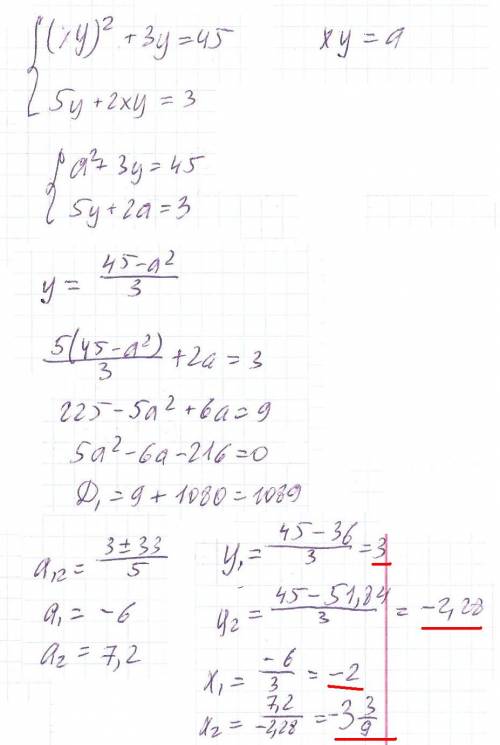 {(xy)² + 3y = 45    xy = a
{5y + 2xy = 3
{a² + 3y = 45
{5y + 2a = 3
y = (45 - a²)/3
5(45 - a²)/3 + 2a = 3
225 - 5a² + 6a = 9
5a² - 6a - 216 = 0
D₁ = 9 + 1080 = 1089
a₁,₂ = (3 ± 33)/5
a₁ = -6
a₂ = 7,2
y₁ = (45 - 36)/3 = 3
y₂ = (45 - 51,84)/3 = -2,28
x₁ = -6/3 = -2
x₂ = 7,2/-2,28 = -3 3/9